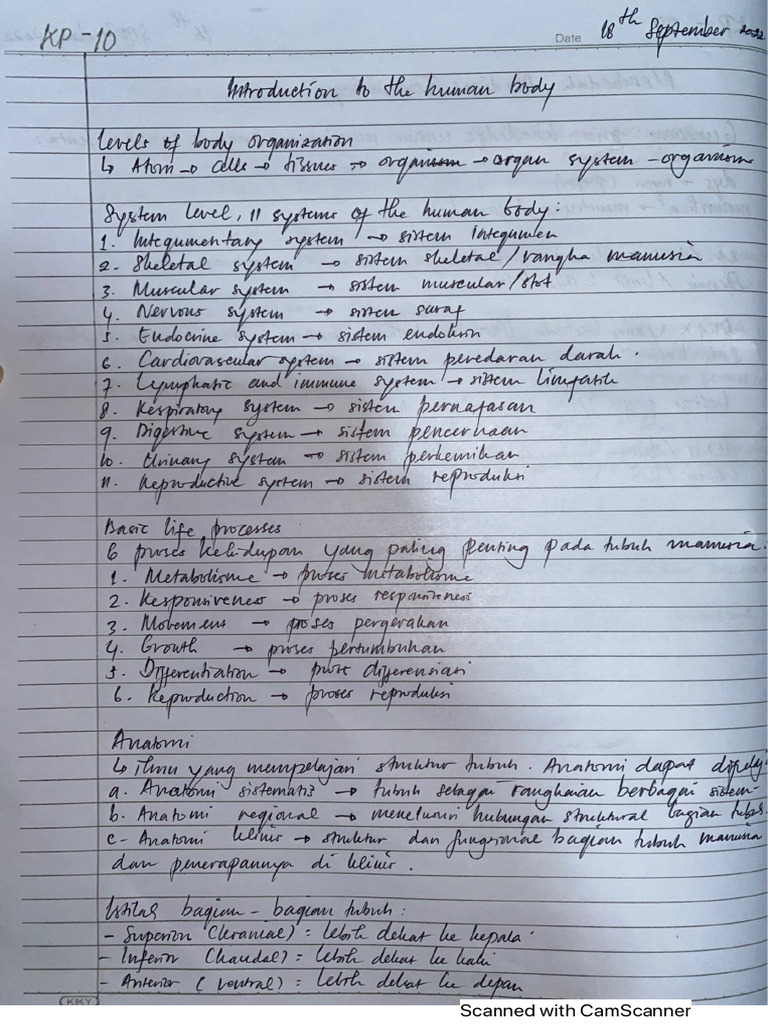 KP-10
Date 18th September 2022
Introduction to the human body
Levels of body organization
↳ Atom → cells → tissues → organ → organ system - organism
System level, 11 systems of the human body:
1. Integumentary system → sistem integumen
2. Skeletal system → sistem skeletal/rangka manusia
3. Muscular system → sistem muscular/otot
4. Nervous system → sistem saraf
5. Endocrine system → sistem endokrin
6. Cardiovascular system → sistem peredaran darah.
7. Lymphatic and immune system → sistem limfatik
8. Respiratory system → sistem pernafasan
9. Digestive system → sistem pencernaan
10. Urinary system → sistem perkemihan
11. Reproductive system → sistem reproduksi
Basic life processes
6 proses kehidupan yang paling penting pada tubuh manusia.
1. Metabolisme → proses metabolisme
2. Responsiveness → proses responsiveness
3. Movement → proses pergerakan
4. Growth → proses pertumbuhan
5. Differentiation → differensiasi
6. Reproduction → proses reproduksi
Anatomi
↳ ilmu yang mempelajari struktur tubuh. Anatomi dapat
a. Anatomi sistematis → tubuh sebagai rangkaian berbagai sistem-
b. Anatomi regional → menelusuri hubungan struktural bagian
c. Anatomi klinis → struktur dan fungsional bagian tubuh manusia
dan penerapannya di klinis.
Istilah bagian-bagian tubuh:
- Superior (kranial) = lebih dekat ke kepala.
- Inferior (kaudal) = lebih dekat ke kaki
- Anterior (ventral) = lebih dekat ke depan
KIKY
Scanned with CamScanner